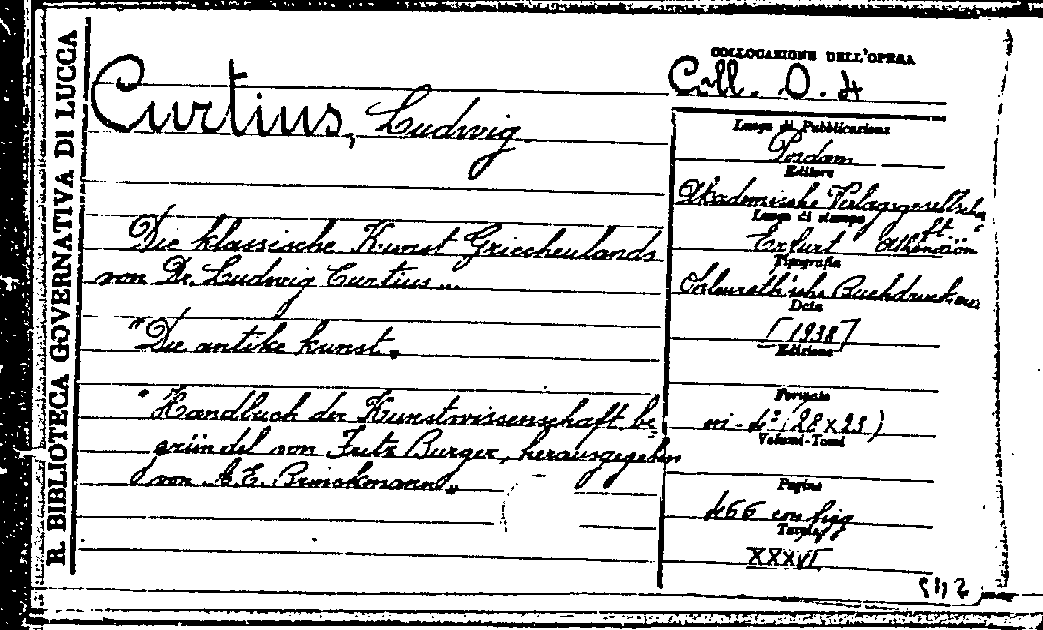 R. BIBLIOTECA GOVERNATIVA DI LUCCA
Curtius, Ludwig
Die klassische Kunst Griechenlands
von Dr. Ludwig Curtius...
"Die antike kunst"
"Handbuch der Kunstwissenschaft be-
gründet von Fritz Burger, herausgegeben
von A. E. Brinckmann"
COLLOCAZIONE DELL'OPERA
Coll. O. 4
Luogo di Pubblicazione
Posdam
Editore
Akademische Verlagsgesellscha
ft
Luogo di stampa
Erfurt Athenaion
Tipografia
Buchdruckerei
Data
[1938]
Edizione
Formato
in-4° (28x23)
Volumi-Tomi
Pagine
466 con figg
Tavole
XXXVI